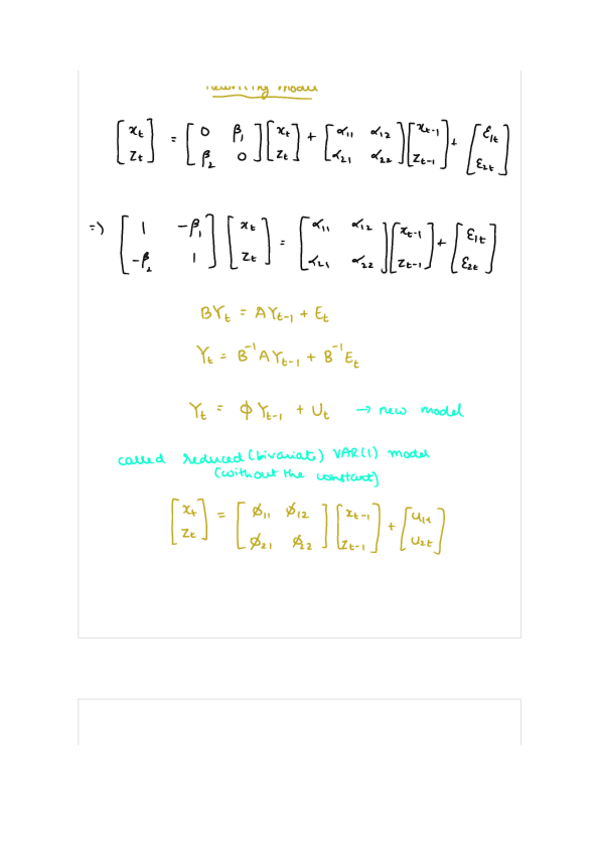 Rewriting model
[x_t; z_t] = [0 β_1; β_2 0] [x_t; z_t] + [α_11 α_12; α_21 α_22] [x_t-1; z_t-1] + [ε_1t; ε_2t]
=) [1 -β_1; -β_2 1] [x_t; z_t] = [α_11 α_12; α_21 α_22] [x_t-1; z_t-1] + [ε_1t; ε_2t]
BY_t = AY_t-1 + E_t
Y_t = B^-1 AY_t-1 + B^-1 E_t
Y_t = φY_t-1 + U_t → new model
called reduced (bivariate) VAR(1) model
(without the constant)
[x_t; z_t] = [φ_11 φ_12; φ_21 φ_22] [x_t-1; z_t-1] + [u_1t; u_2t]